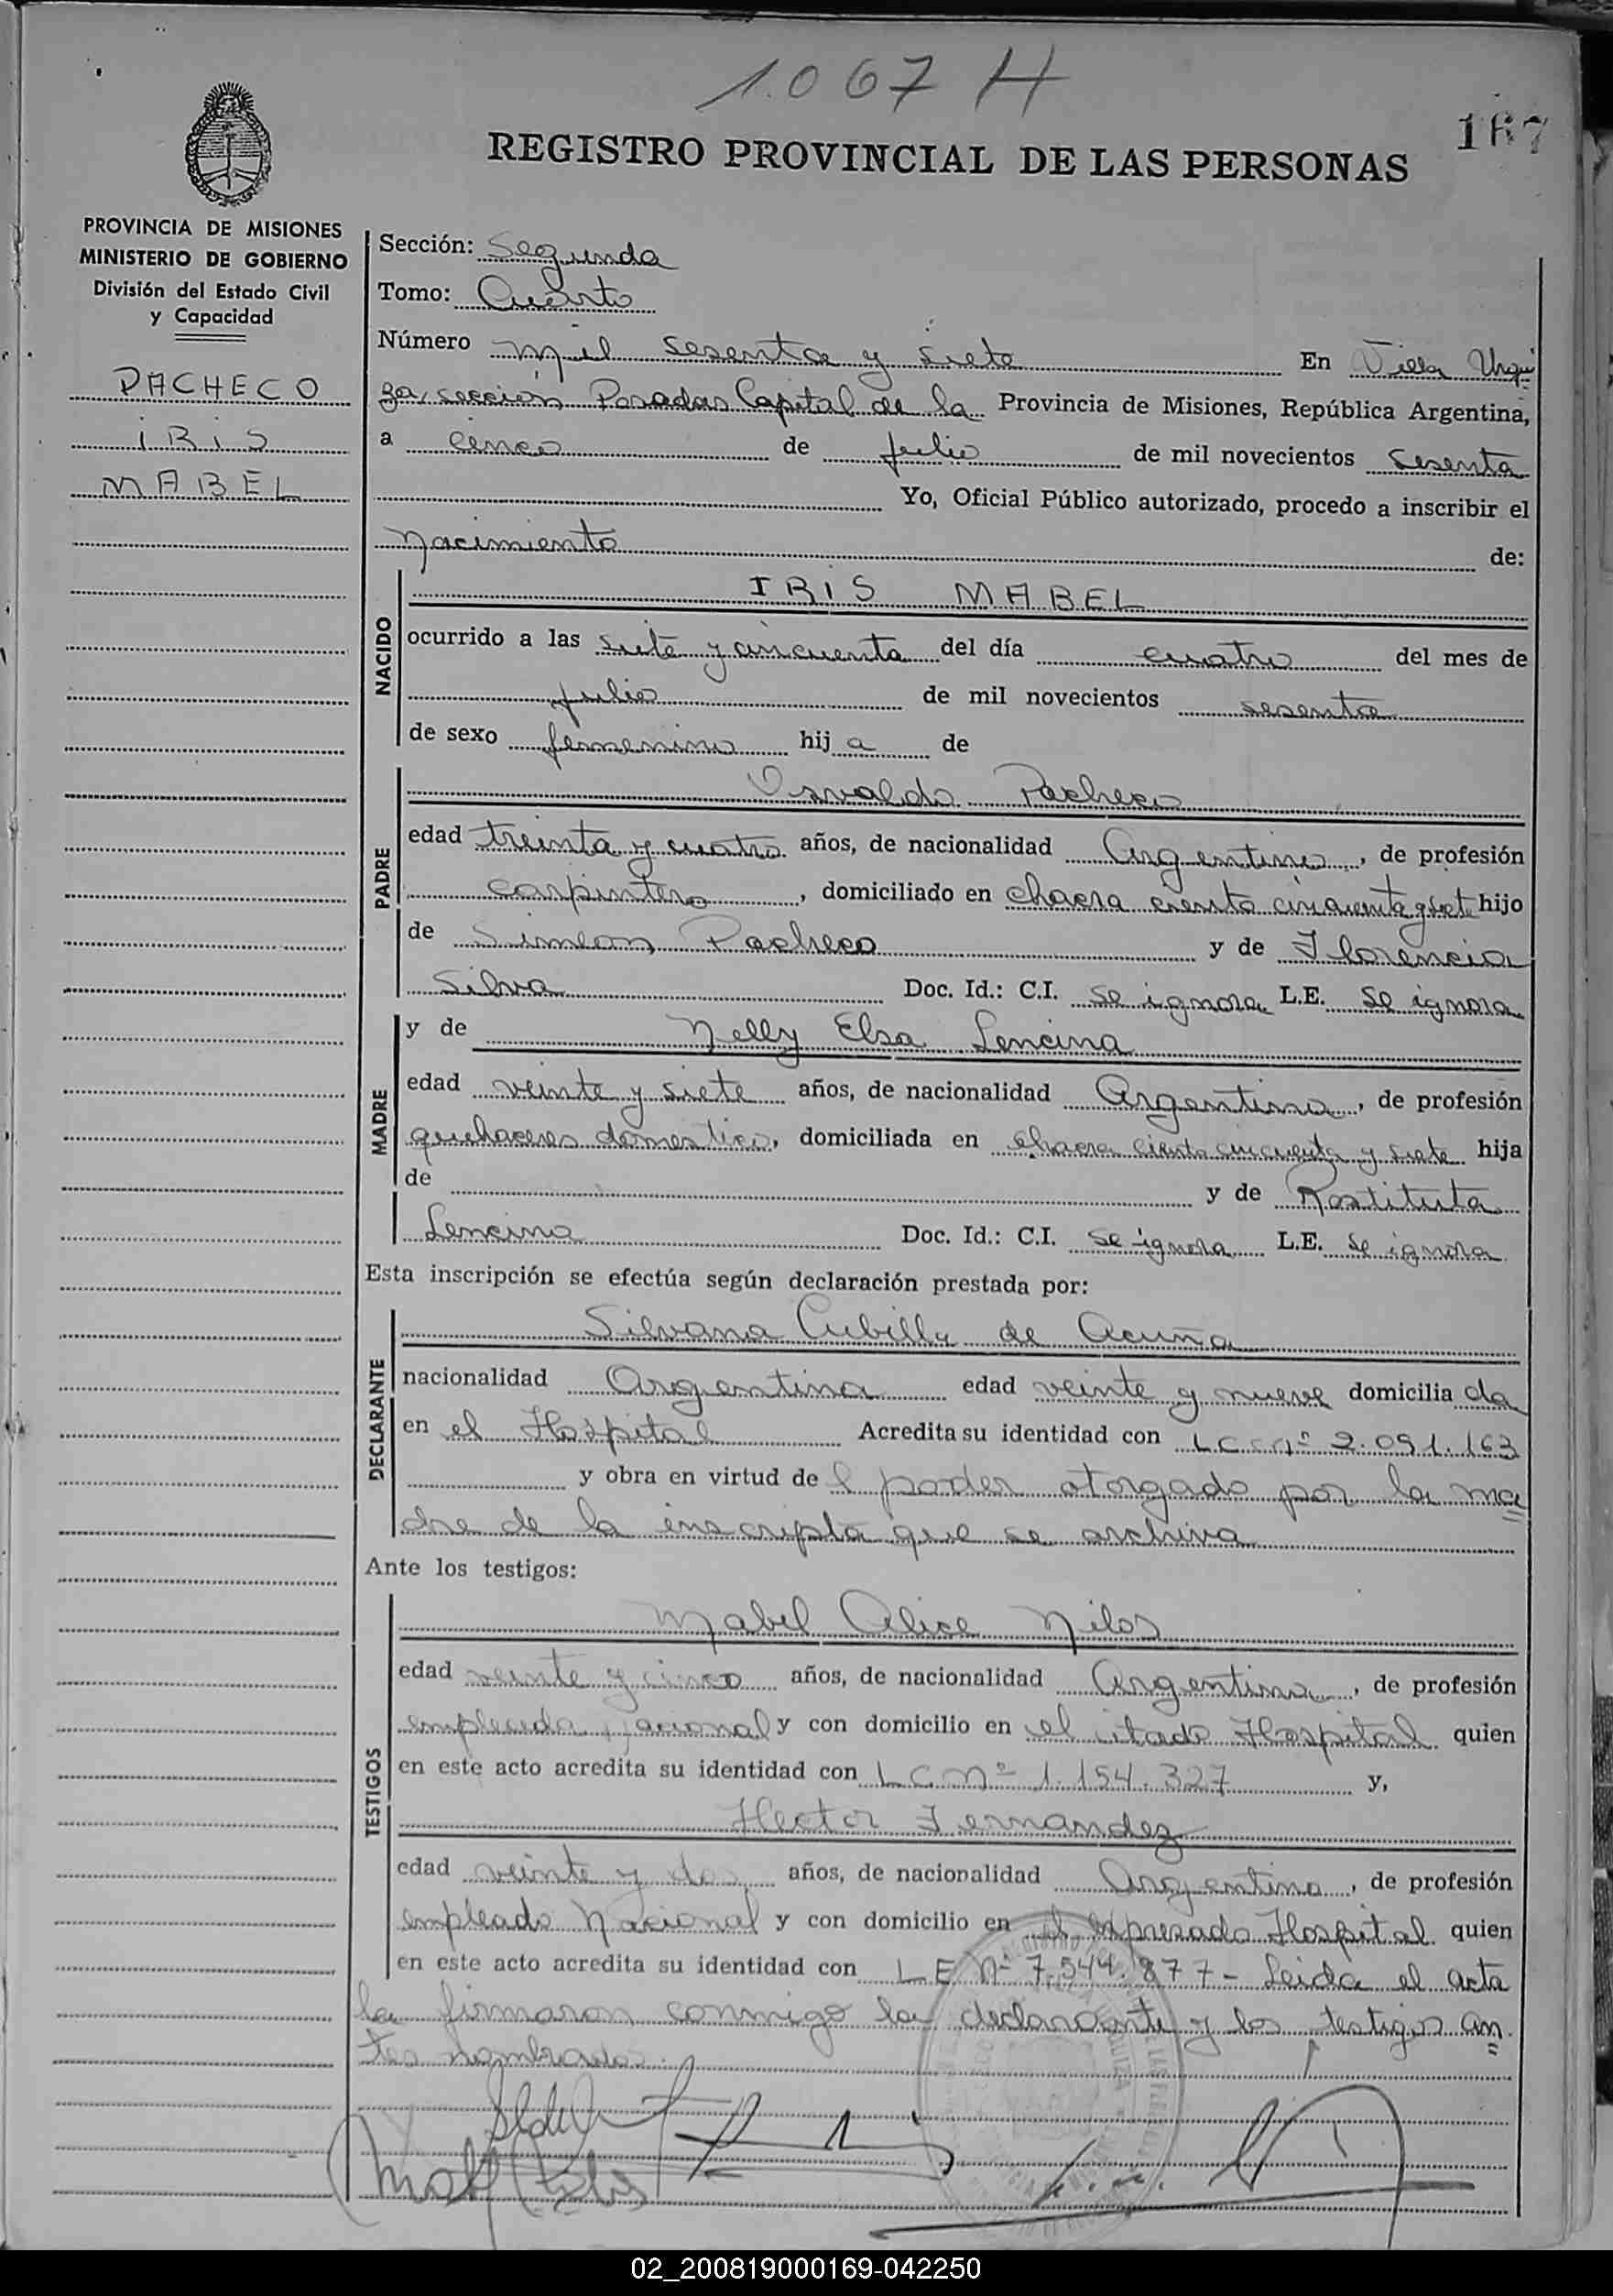 1.067 H
167
REGISTRO PROVINCIAL DE LAS PERSONAS
PROVINCIA DE MISIONES
MINISTERIO DE GOBIERNO
División del Estado Civil
y Capacidad
PACHECO
IRIS
MABEL
Sección: Segunda
Tomo: Cuarto
Número mil sesenta y siete En Villa Urqui
za, sección Posadas Capital de la Provincia de Misiones, República Argentina,
a cinco de julio de mil novecientos sesenta
Yo, Oficial Público autorizado, procedo a inscribir el
Nacimiento de:
NACIDO
IRIS MABEL
ocurrido a las siete y cincuenta del día cuatro del mes de
julio de mil novecientos sesenta
de sexo femenino hij a de
PADRE
Osvaldo Pacheco
edad treinta y cuatro años, de nacionalidad Argentino, de profesión
carpintero, domiciliado en chacra ciento cincuenta y siete hijo
de Simeon Pacheco y de Florencia
Silva Doc. Id.: C.I. se ignora L.E. se ignora
MADRE
y de Nelly Elsa Lencina
edad veinte y siete años, de nacionalidad Argentina, de profesión
quehaceres domestico, domiciliada en chacra ciento cincuenta y siete hija
de y de Restituta
Lencina Doc. Id.: C.I. se ignora L.E. se ignora
Esta inscripción se efectúa según declaración prestada por:
DECLARANTE
Silvana Cubilla de Acuña
nacionalidad Argentina edad veinte y nueve domicilia da
en el Hospital Acredita su identidad con L C nº 2.091.163
y obra en virtud de l poder otorgado por la ma
dre de la inscripta que se archiva
Ante los testigos:
TESTIGOS
Mabel Alice Nilos
edad veinte y cinco años, de nacionalidad Argentina, de profesión
empleada nacional y con domicilio en el citado Hospital quien
en este acto acredita su identidad con L C Nº 1.154.327 y,
Hector Fernandez
edad veinte y dos años, de nacionalidad Argentino, de profesión
empleado Nacional y con domicilio en el expresado Hospital quien
en este acto acredita su identidad con L E Nº 7.544.877- Leida el acta
la firmaron conmigo la declarante y los testigos an
tes nombrados.
02_200819000169-042250